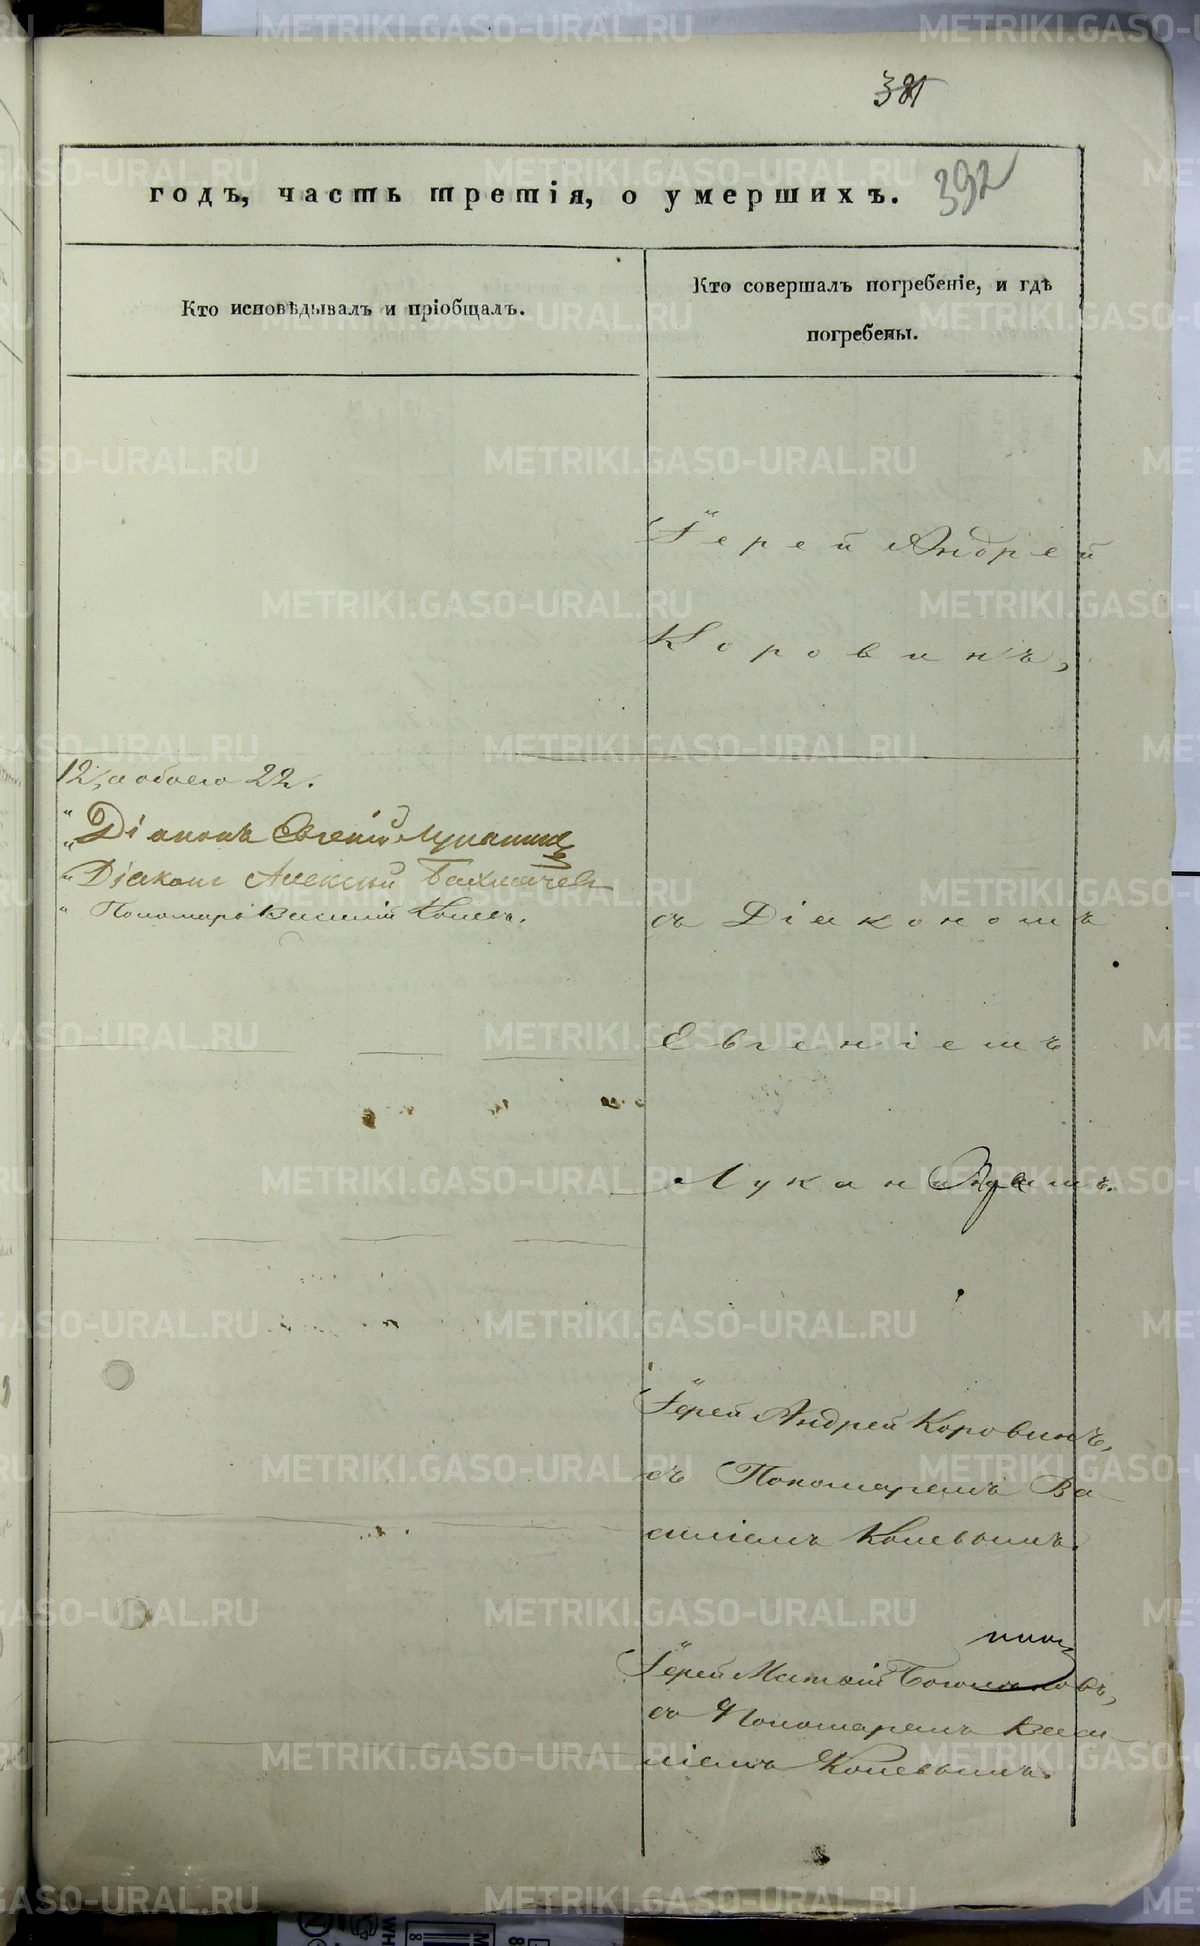 381
годъ, часть третія, о умершихъ.
392
Кто исповѣдывалъ и пріобщалъ.
Кто совершалъ погребеніе, и гдѣ
погребены.
Іерей Андрей
Коровинъ,
12, а обоего 22.
Діаконъ Евгеній Луканинъ
Діаконъ Алексій Бахмачев
Пономарь Василій Коневъ.
съ Діакономъ
Евгеніемъ
Луканинымъ.
Іерей Андрей Коровинъ,
съ Пономаремъ Ва
силіемъ Коневымъ.
Іерей Матфій
съ Пономаремъ Васи
ліемъ Коневымъ.
METRIKI.GASO-URAL.RU